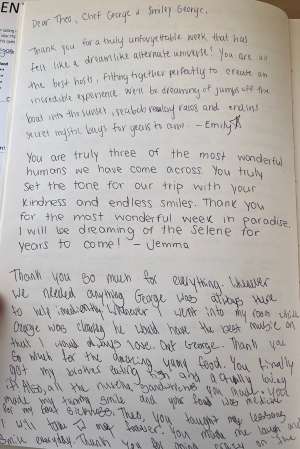 EN
Dear Theo, Chef George & Smiley George,
Thank you for a truly unforgettable week that has
felt like a dreamlike alternate universe! You are all
the best host, fitting together perfectly to create an
incredible experience. We'll be dreaming of jumps off the
boat into the sunset, seabob racing and endless
secret mystic bays for years to come. – Emily
You are truly three of the most wonderful
humans we have come across. You truly
set the tone for our trip with your
kindness and endless smiles. Thank you
for the most wonderful week in paradise.
I will be dreaming of the Selene for
years to come! – Jemma
Thank you so much for everything. Whenever
we needed anything George was always here
to help immediately. Whenever I went into my room while
George was cleaning he would have the best music on
that I would always love. Chef George. Thank you
so much for the amazing yummy food. You finally
got my brother eating fish and actually loving
it! Also, all the nutella sandwiches you made
made my tummy smile and your food was medicine
for my boat sickness. Theo, you taught me lessons
I will take forever. You made me laugh and
smile everyday. Thank you for